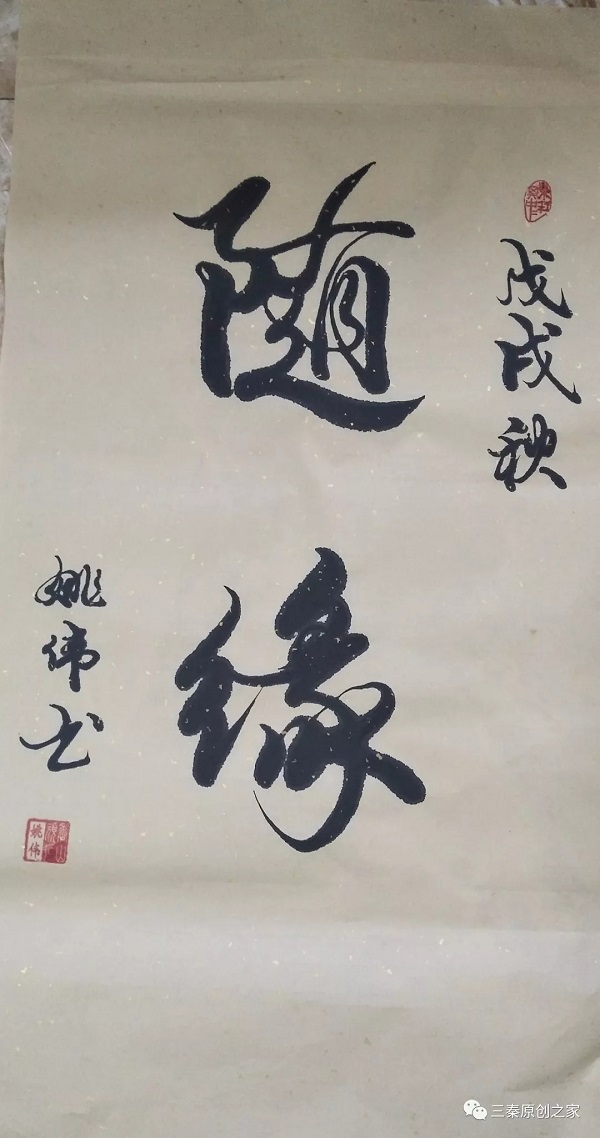 戊戌秋
随缘
姚伟书
姚伟
三秦原创之家